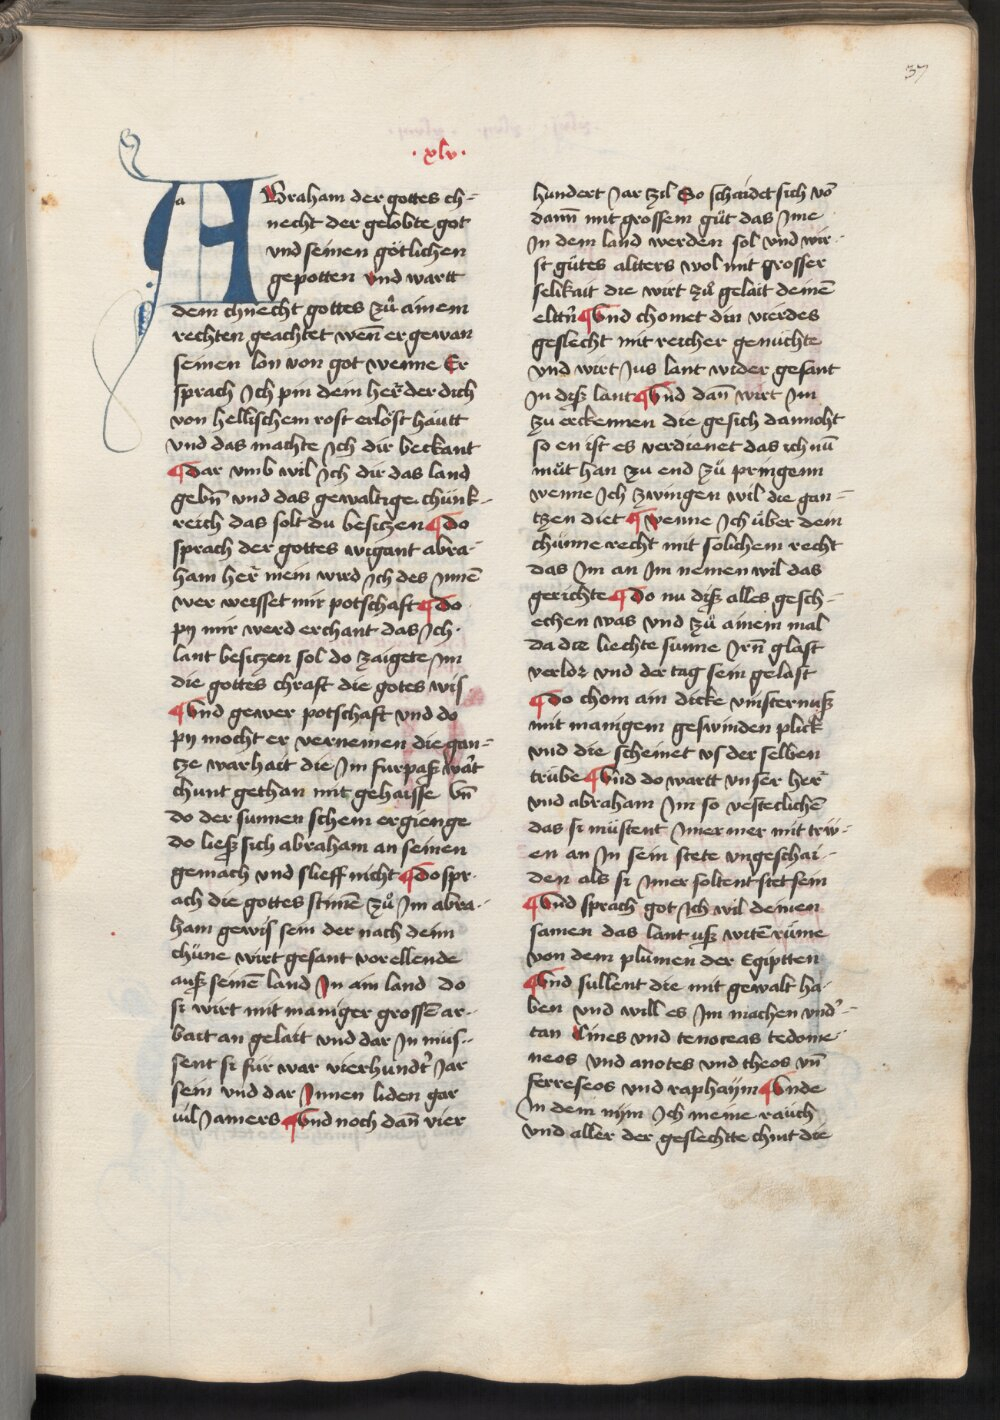 37
·xlv·
ABraham der gottes ch-
necht der gelobte got
vnd seinen götlichen
gepotten vnd wartt
dem chnecht gottes zů ainem
rechten geachtet wen̄ er gewan
seinen lon von got wenne Er
sprach Ich pin dein her̄ der dich
von hellischem rost erlöst hautt
vnd das machte Ich dir beckant
¶Dar vmb wil Ich dir das land
gebn̄ vnd das gewaltige chünk-
reich das solt du besitzen ¶Do
sprach der gottes wigant abra-
ham her̄ mein wird Ich des Innē
wer weisset mir potschaft ¶Do
py mir werd erchant das Ich
lant besitzen sol do zaigete Im
die gottes chraft die gotes wis
¶Vnd gewer potschaft vnd do
py mocht er vernemen die gan-
tze warhait die Im furpaß wart
chunt gethan mit gehaisse vn̄
do der sunnen schein ergienge
do ließ sich abraham an seinen
gemach vnd slieff nicht ¶Do spr-
ach die gottes stimē zů Im abra-
ham gewis sein der nach deim
chüne wirt gesant vor ellende
auß seinē land In ain land do
si wirt mit maniger grossē ar-
bait an gelait vnd dar In müs-
sent si für war vierhundt' Jar
sein vnd dar Innen liden gar
vil Jamers ¶Vnd noch dan̄ vier
hundert Jar zil So schaidet sich vō
dann̄ mit grossem gůt das Ime
In dem land werden sol vnd wir-
st gůtes altters wol mit grosser
selikait die wirt zů gelait deinē
eltt'n ¶Vnd chomet din vierdes
geslecht mit reicher genüchte
vnd wirt Jus lant wider gesant
In diß lant ¶Vnd dan̄ wirt Im
zu erckennen die gesich dannoht
so en ist es verdienet das ich nū
můt han zu end zů pringenn
wenne Ich zwingen wil die gan-
tzen diet ¶Wenne Ich über dem
chünne recht mit solichem recht
das Im an Im nemen wil das
gerichte ¶Do nu diß alles gesch-
echen was vnd zů ainem mal
da die liechte sunne Irn̄ glast
verlor vnd der tag sein gelast
¶Do chom ain dicke vinsternuß
mit manigem geswinden plick
vnd die scheinet vs der selben
trübe ¶Vnd do wartt vnser her̄
vnd abraham Im so vesteclichē
das si müstent Imer mer mit trw-
en an In sein stete vngeschai-
den als si Imer soltent stet sein
¶Vnd sprach got Ich wil deinen
samen das lant uß witē rüme
von dem plumen der Egiptten
¶Vnd sullent die mit gewalt ha-
ben vnd will es Im machen vnd'-
tan Cines vnd tenoceas tedome-
neos vnd anotes vnd theos vn̄
ferreseos vnd raphaym ¶Vnde
In dem nym Ich meine rauch
vnd aller der geslechtte chint die